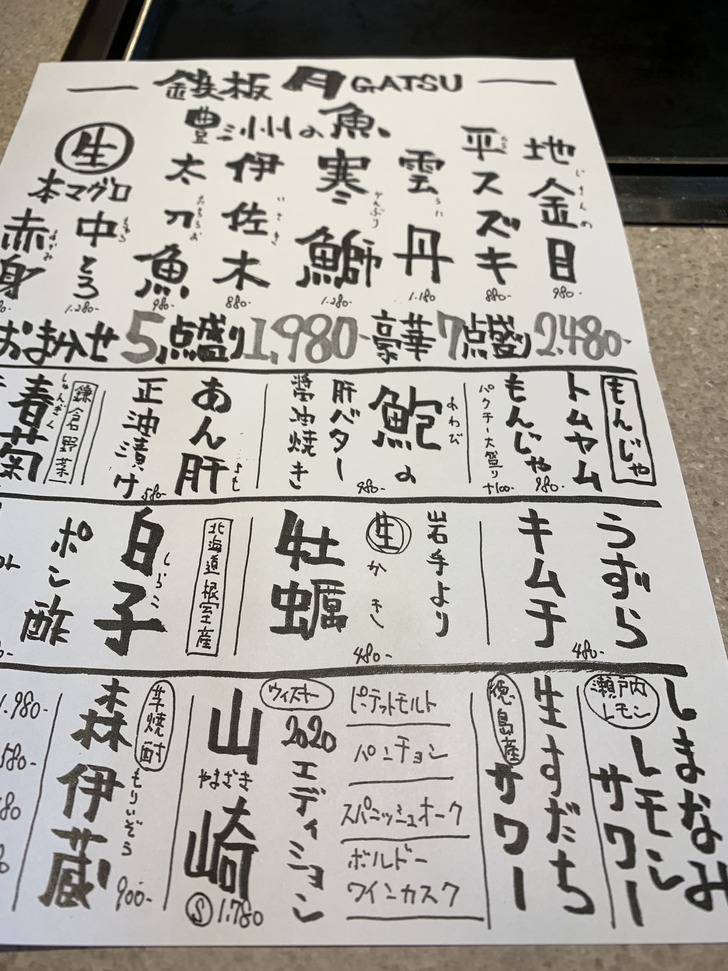 鉄板 月 GATSU
豊洲の魚
地金目
じきんめ
980-
平スズキ
880-
雲丹
うに
1.180
寒鰤
かんぶり
1.280-
伊佐木
いさき
880-
太刀魚
たちうお
980-
生
本マグロ
中とろ
ちゅう
1.280-
赤身
あかみ
おまかせ 5点盛り 1,980- 豪華 7点盛り 2.480-
もんじゃ
トムヤム
もんじゃ
980-
パクチー大盛り
+100-
鮑の
あわび
肝バター
醬油焼き
980-
あん肝
正油漬け
580-
鎌倉野菜
春菊
しゅんぎく
うずら
キムチ
480-
岩手より
生かき
牡蠣
480-
北海道根室産
白子
しらこ
ポン酢
瀬戸内
レモン
しまなみ
レモン
サワー
徳島産
生すだち
サワー
ピーテッドモルト
パンチョン
スパニッシュオーク
ボルドー
ワインカスク
ウィスキー
2020エディション
山崎
やまざき
Ⓢ 1.780
芋焼酎
森伊蔵
もりいぞう
900-
1.980-
580-